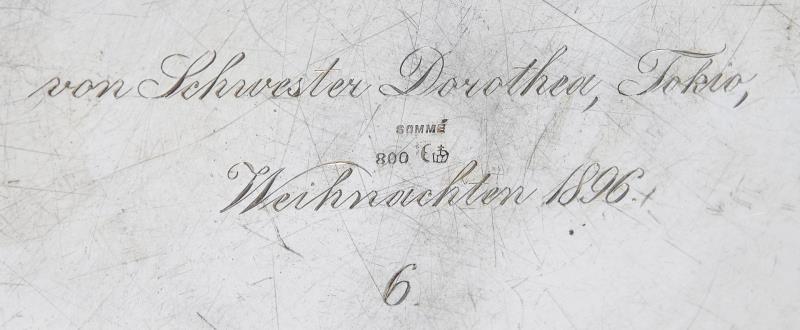 von Schwester Dorothea, Tokio,
SOMMÉ
800
Weihnachten 1896.
6